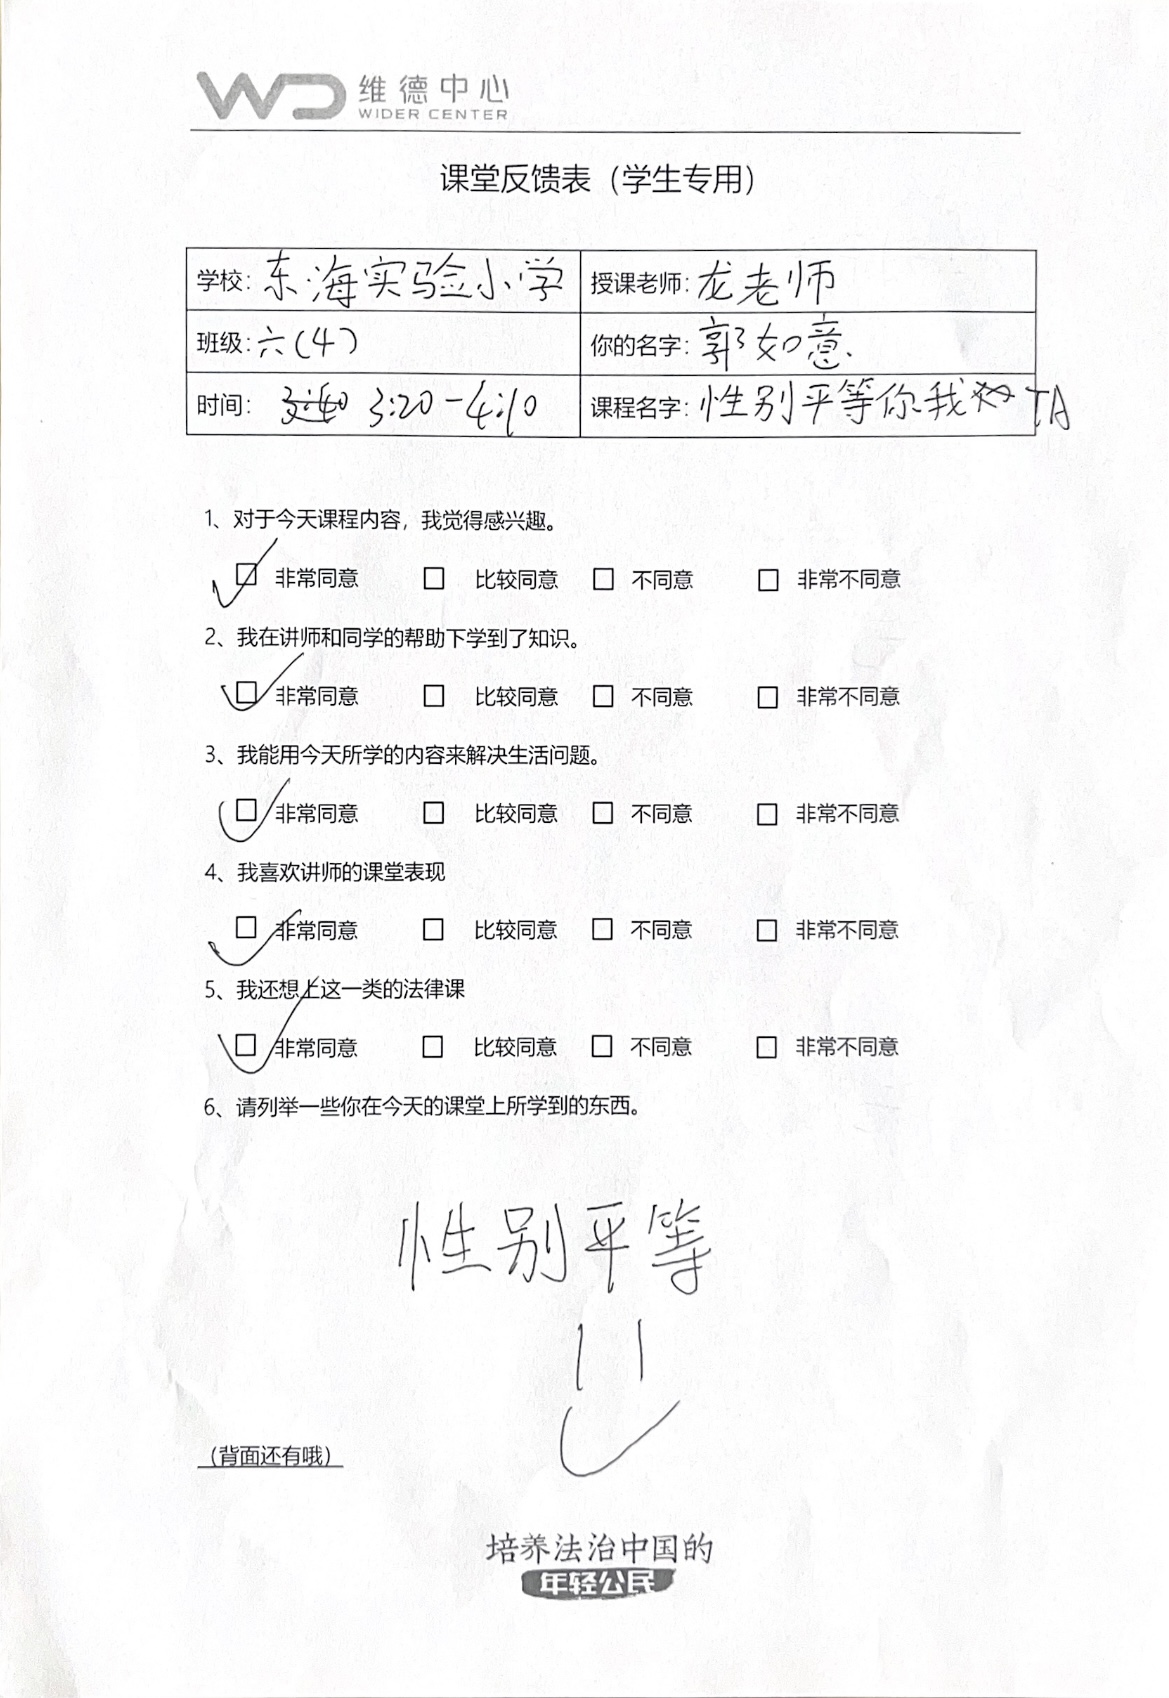 WD 维德中心
WIDER CENTER
课堂反馈表（学生专用）
学校: 东海实验小学 授课老师: 龙老师
班级: 六(4) 你的名字: 郭如意.
时间: 3:20-4:10 课程名字: 性别平等你我TA
1、对于今天课程内容，我觉得感兴趣。
☑ 非常同意 □ 比较同意 □ 不同意 □ 非常不同意
2、我在讲师和同学的帮助下学到了知识。
☑ 非常同意 □ 比较同意 □ 不同意 □ 非常不同意
3、我能用今天所学的内容来解决生活问题。
☑ 非常同意 □ 比较同意 □ 不同意 □ 非常不同意
4、我喜欢讲师的课堂表现
☑ 非常同意 □ 比较同意 □ 不同意 □ 非常不同意
5、我还想上这一类的法律课
☑ 非常同意 □ 比较同意 □ 不同意 □ 非常不同意
6、请列举一些你在今天的课堂上所学到的东西。
性别平等
（背面还有哦）
培养法治中国的
年轻公民